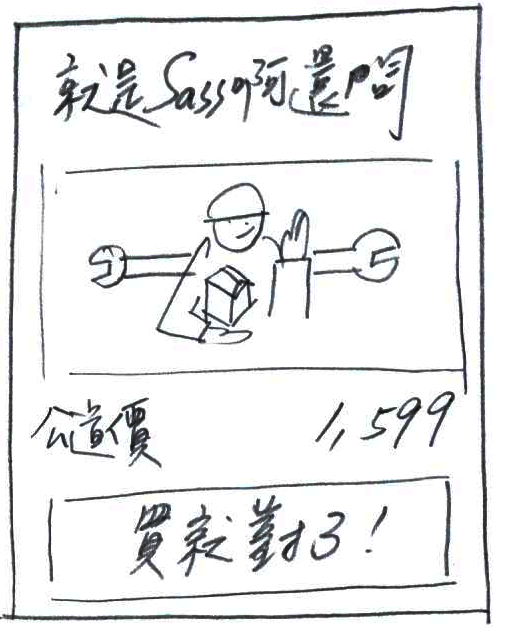 就是Sass啊還問
公道價 1,599
買就對了!